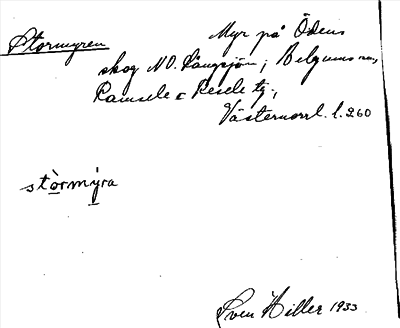 Stormyren
Myr på Ödens
skog NO. Långsjön; Belgums
Ramsele o Resele tg.,
Västernorrl. l. 260
stòrmýra
Sven Hiller 1933